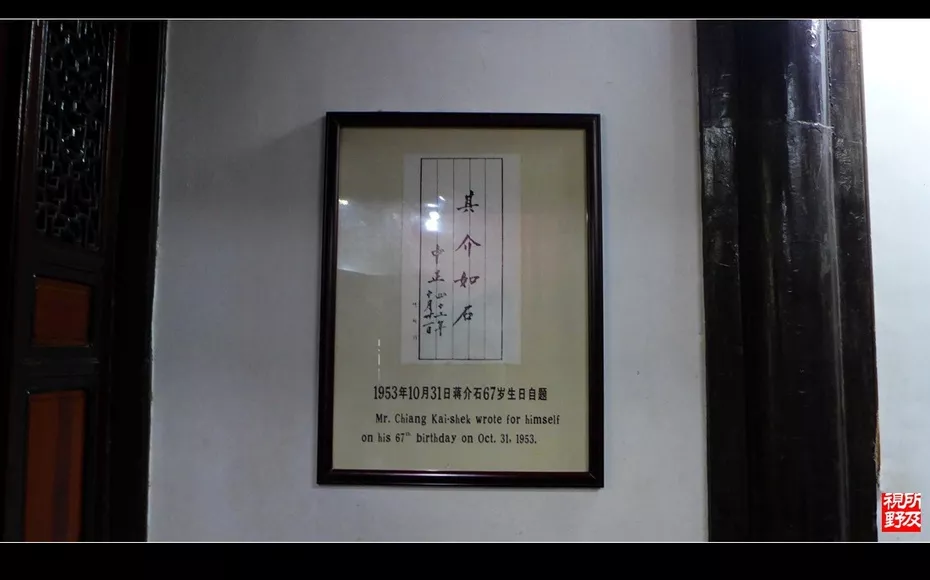 其介如石
中正
四十二年
十月卅一日
1953年10月31日蒋介石67岁生日自题
Mr. Chiang Kai-shek wrote for himself
on his 67th birthday on Oct. 31, 1953.
視野
所及